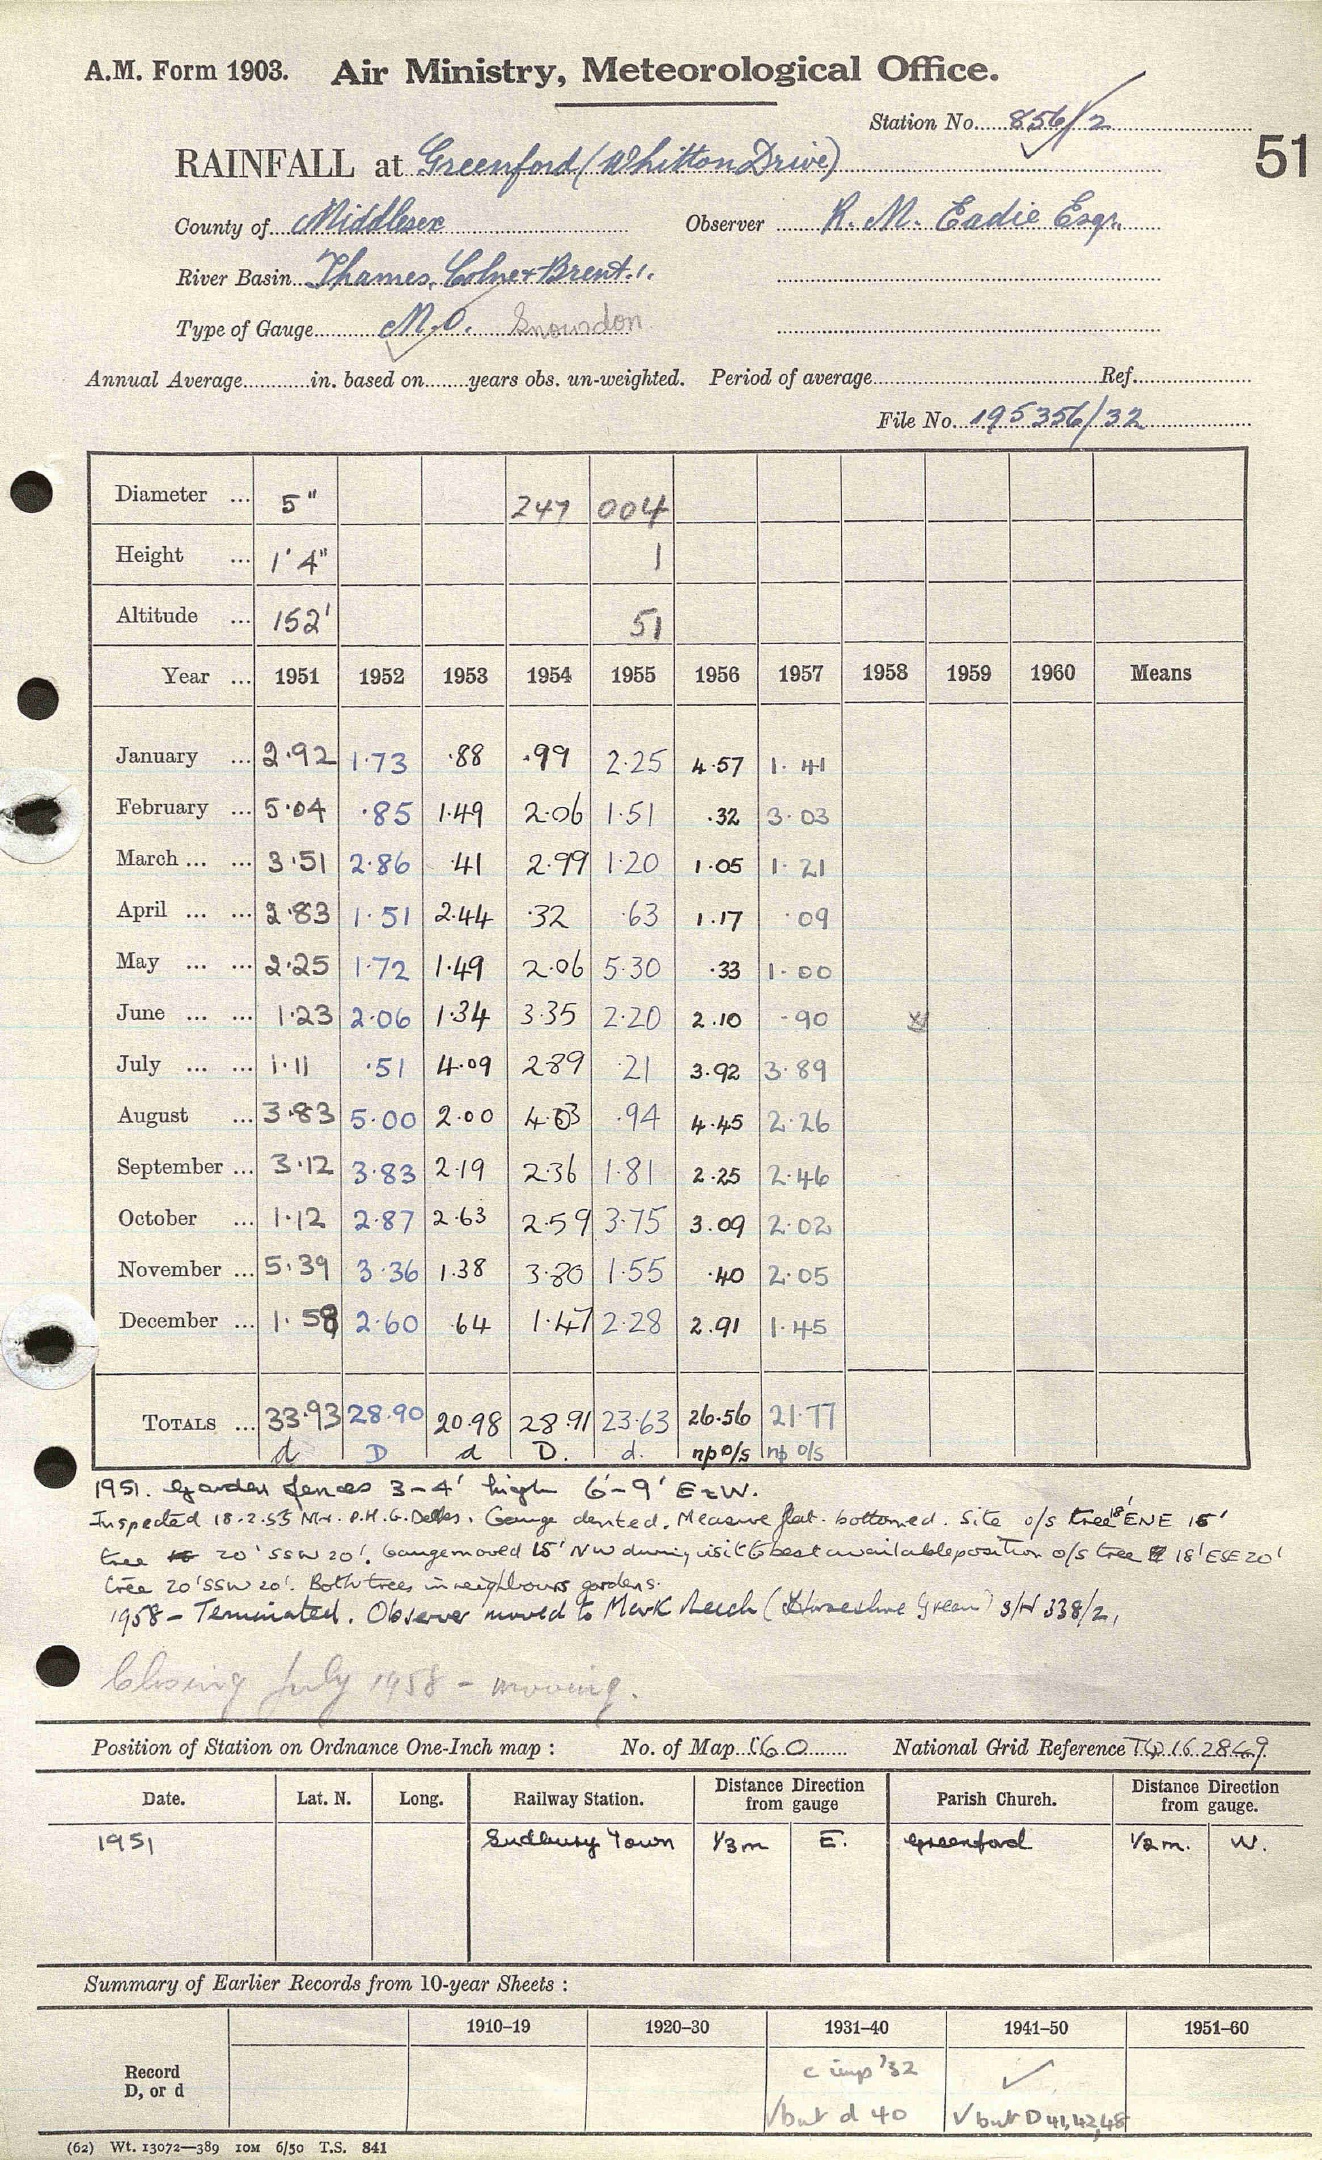 A.M. Form 1903. Air Ministry, Meteorological Office.
Station No. 856/2
51
RAINFALL at Greenford (Whitton Drive)
County of Middlesex Observer R. M. Eadie Esqr.
River Basin Thames, Colne & Brent.
Type of Gauge M.O. Snowdon
Annual Average in. based on years obs. un-weighted. Period of average Ref.
File No. 195356/32
Diameter ... 5" 247 004
Height ... 1' 4" 1
Altitude ... 152' 51
Year ... 1951 1952 1953 1954 1955 1956 1957 1958 1959 1960 Means
January ... 2.92 1.73 .88 .99 2.25 4.57 1.41
February ... 5.04 .85 1.49 2.06 1.51 .32 3.03
March ... ... 3.51 2.86 .41 2.99 1.20 1.05 1.21
April ... ... 2.83 1.51 2.44 .32 .63 1.17 .09
May ... ... 2.25 1.72 1.49 2.06 5.30 .33 1.00
June ... ... 1.23 2.06 1.34 3.35 2.20 2.10 .90
July ... ... 1.11 .51 4.09 2.89 .21 3.92 3.89
August ... 3.83 5.00 2.00 4.03 .94 4.45 2.26
September ... 3.12 3.83 2.19 2.36 1.81 2.25 2.46
October ... 1.12 2.87 2.63 2.59 3.75 3.09 2.02
November ... 5.39 3.36 1.38 3.80 1.55 .40 2.05
December ... 1.58 2.60 .64 1.47 2.28 2.91 1.45
TOTALS ... 33.93 28.90 20.98 28.91 23.63 26.56 21.77
d D d D. d. np o/s np o/s
1951. Garden fences 3-4' high 6'-9' E & W.
Inspected 18.2.55 Mr. P.H.G. Gauge dented. Measure flat-bottomed. Site o/s tree 18' ENE 15'
tree 20' SSW 20'. Gauge moved 15' NW during visit to best available position o/s tree 18' ESE 20'
tree 20' SSW 20'. Both trees in neighbours gardens.
1958 - Terminated. Observer moved to Mark Beech (Horseshoe Green) S/N 338/2,
Closing July 1958 - moving.
Position of Station on Ordnance One-Inch map: No. of Map 160 National Grid Reference TQ 162849
Date. Lat. N. Long. Railway Station. Distance Direction from gauge Parish Church. Distance Direction from gauge.
1951 Sudbury Town 1/3 m E. Greenford 1/2 m. W.
Summary of Earlier Records from 10-year Sheets:
1910-19 1920-30 1931-40 1941-50 1951-60
Record
D, or d
c imp '32 ✓
✓ but d 40 ✓ but D 41, 42, 48
(62) Wt. 13072—389 10M 6/50 T.S. 841